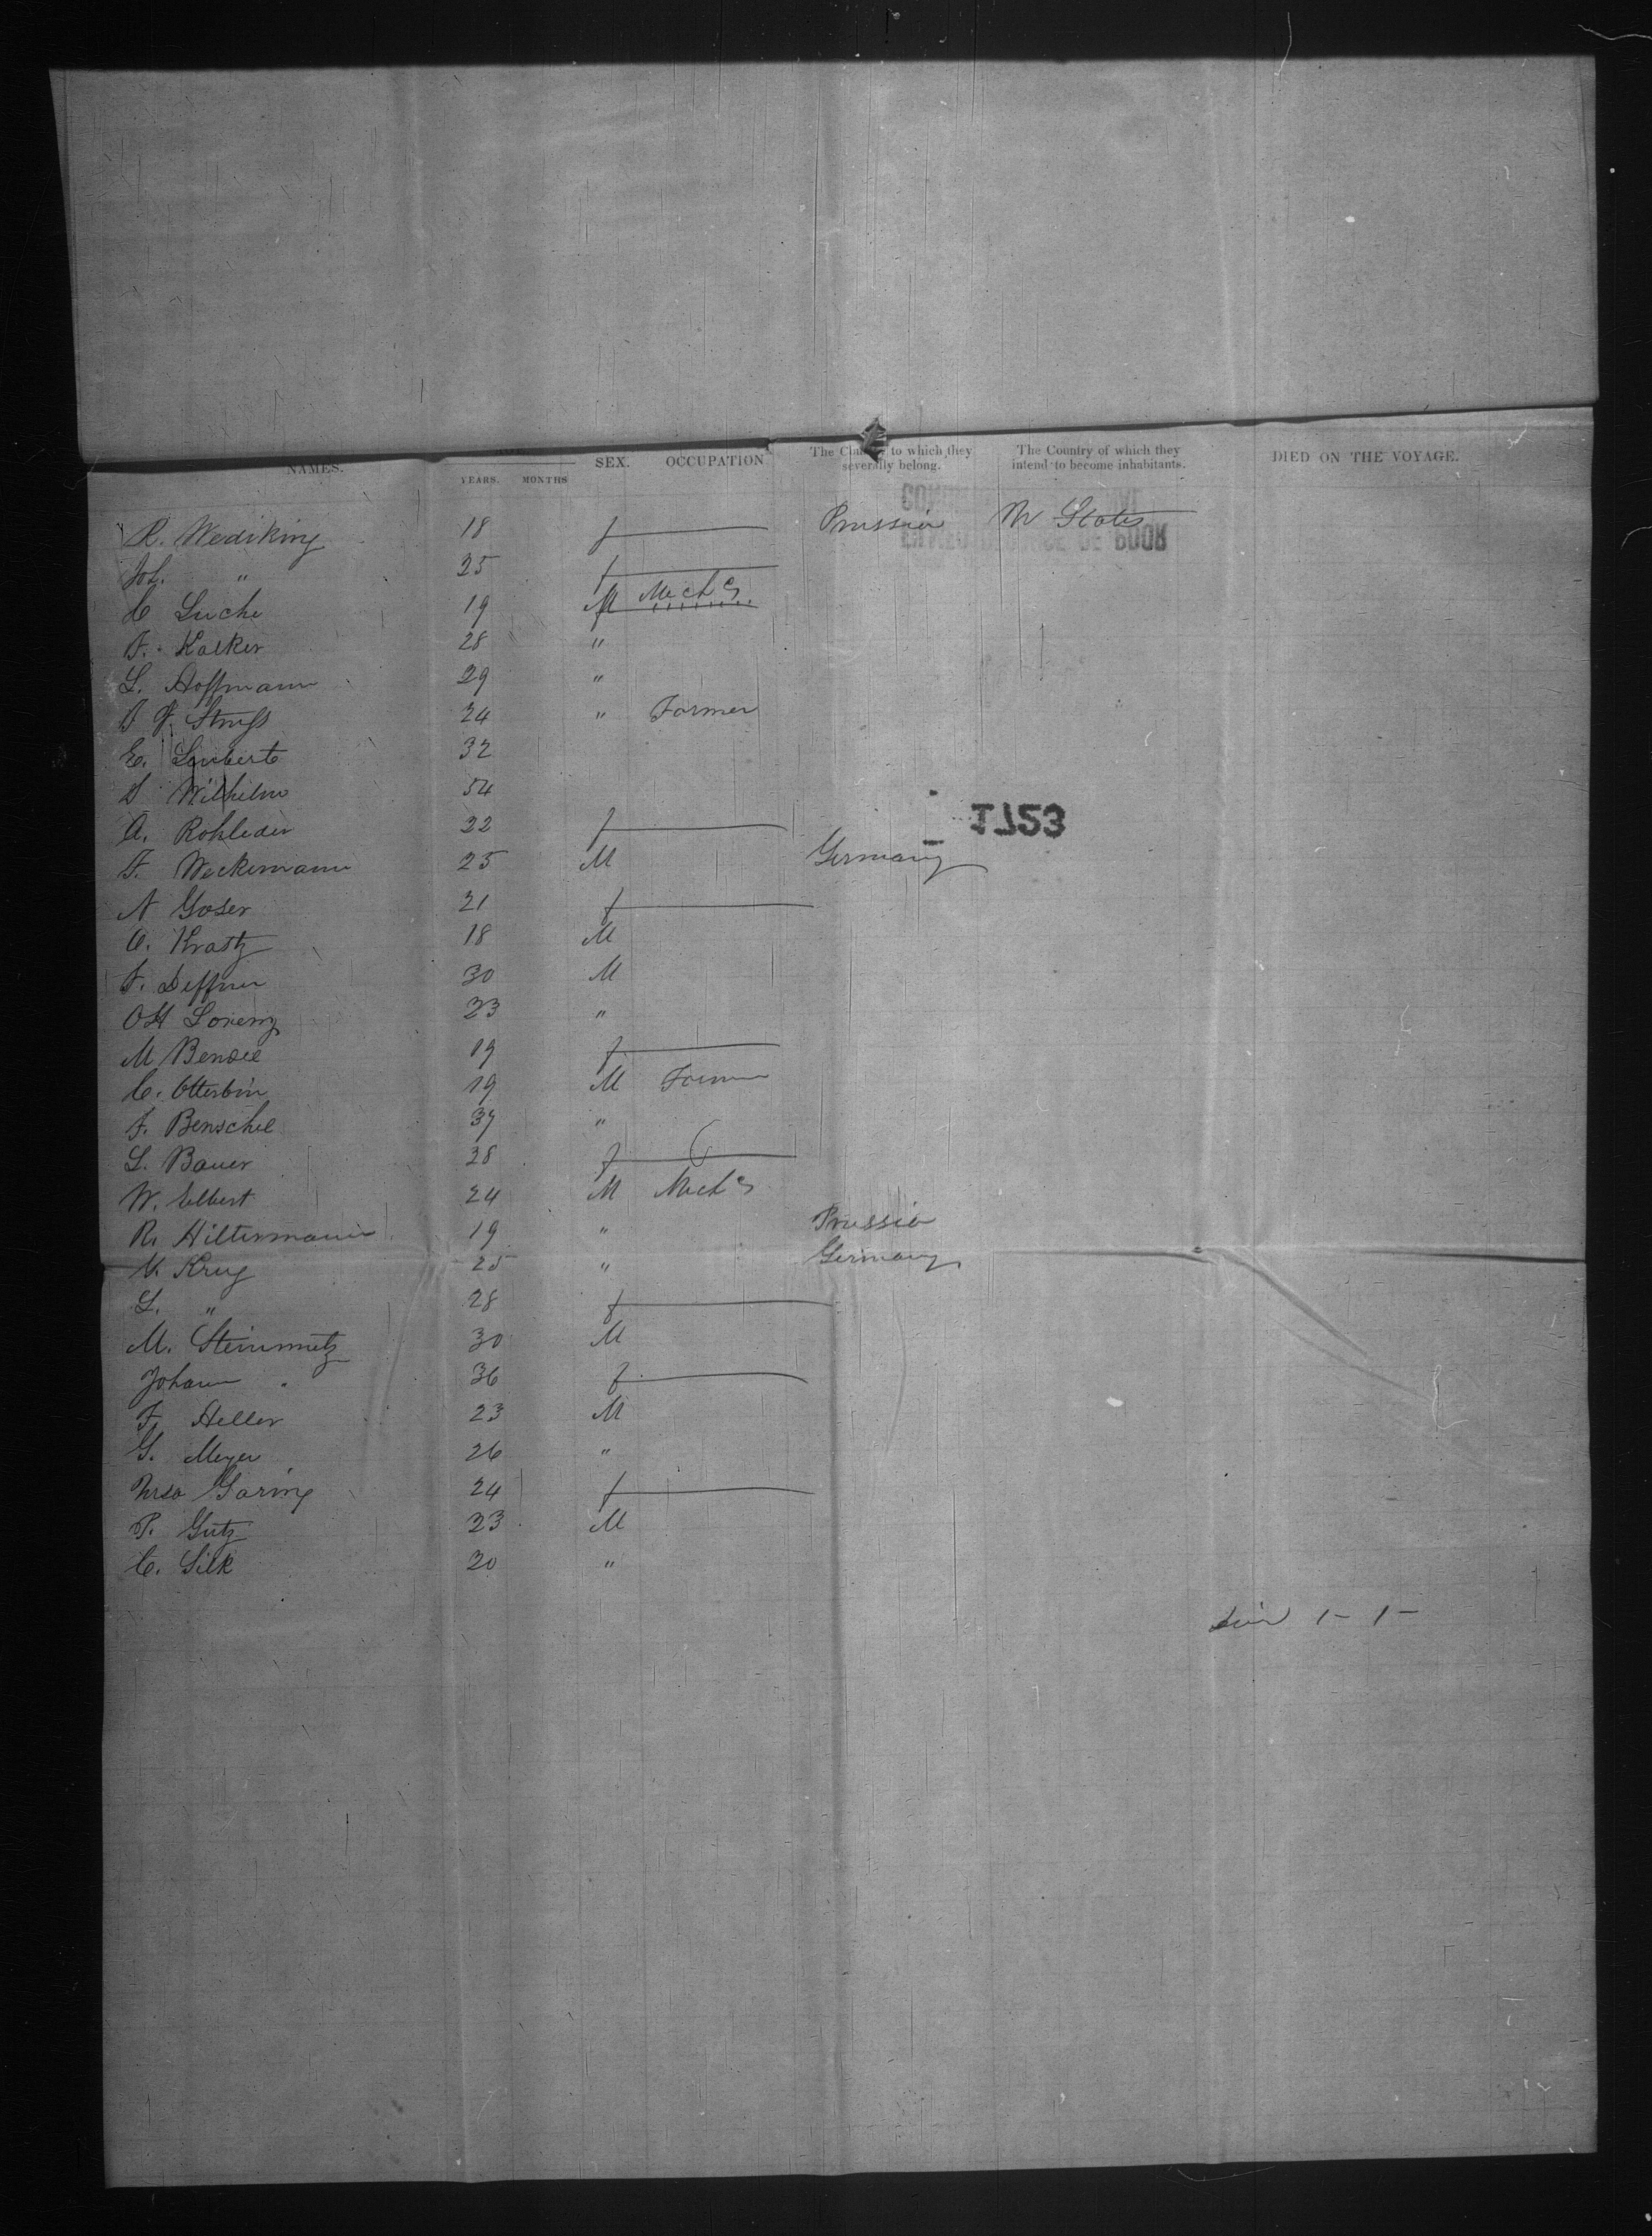 NAMES. YEARS. MONTHS SEX. OCCUPATION The Country to which they severally belong. The Country of which they intend to become inhabitants. DIED ON THE VOYAGE.
R. Wediking 18 f Prussia States
Joh. " 25 f
C Luche 19 M Mech cs
F. Kalker 28 "
L. Hoffmann 29 "
Strufs 24 " Farmer
E. Leubert 32
Wilhelm 54
A. Rohleder 22 f
F. Weckemann 25 M Germany
N Goser 21 f
C. Kratz 18 M
F. Deffner 30 M
Ott Lorenz 23 "
M Bensel 19 f
C. Otterbin 19 M Farmer
F. Benschel 37 "
L. Bauer 28 f
W. Elbert 24 M Mech cs
R. Hiltermann 19 " Prussia
V. Krug 25 " Germany
L. " 28 f
M. Steinmetz 30 M
Johann " 36 f
F. Heller 23 M
G. Meyer 26 "
Goring 24 f
P. Gutz 23 M
C. Silk 20 "
1- 1-